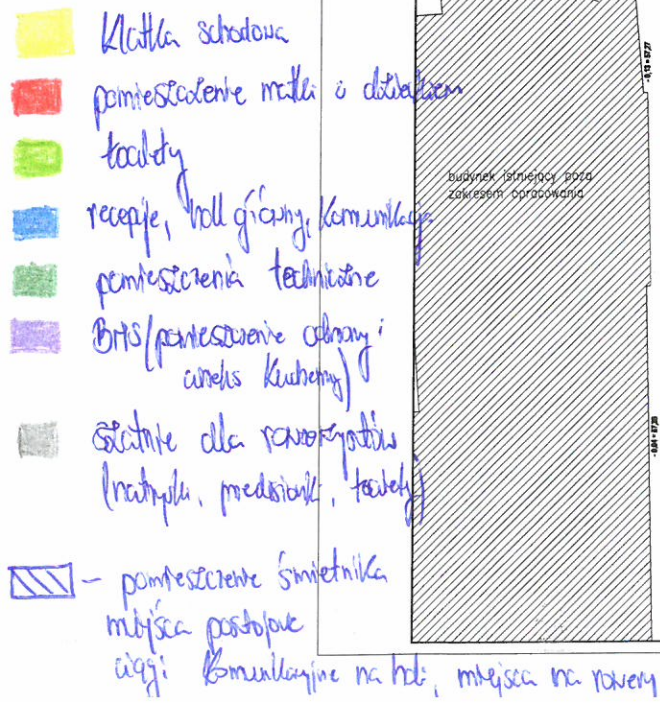 Klatka schodowa
pomieszczenie matki z dzieckiem
toalety
recepcje, holl główny, Komunikacja
pomieszczenia techniczne
BMS (pomieszczenie ochrony i
aneks Kuchenny)
szatnie dla rowerzystów
(natryski, przedsionki, toalety)
- pomieszczenie śmietnika
miejsca postojowe
ciągi Komunikacyjne na hali, miejsca na rowery
budynek istniejący poza
zakresem opracowania